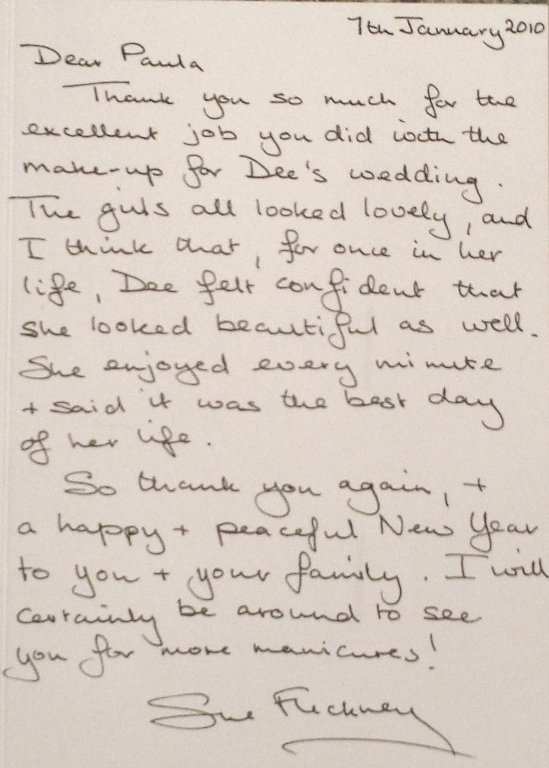 7th January 2010
Dear Paula
Thank you so much for the
excellent job you did with the
make-up for Dee's wedding.
The girls all looked lovely, and
I think that, for once in her
life, Dee felt confident that
she looked beautiful as well.
She enjoyed every minute
+ said it was the best day
of her life.
So thank you again, +
a happy + peaceful New Year
to you + your family. I will
certainly be around to see
you for more manicures!
Sue Fleckney